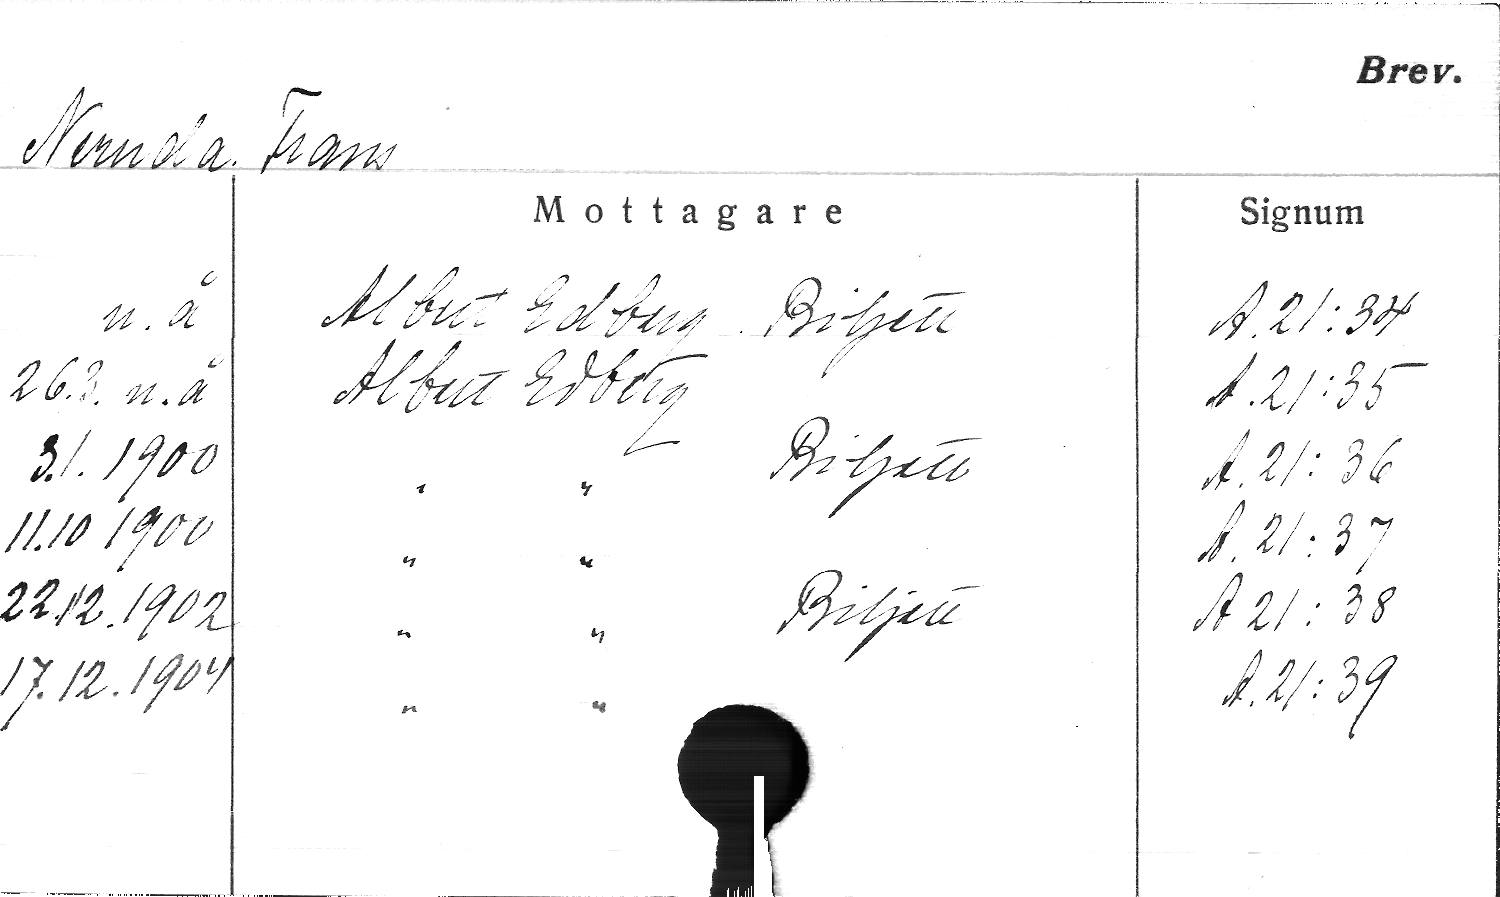 Brev.
Neruda. Frans
Mottagare Signum
n.å Albert Edberg. Biljett A.21:34
26.3. n.å Albert Edberg A.21:35
3.1. 1900 " " Biljett A.21:36
11.10 1900 " " A.21:37
22.12.1902 " " Biljett A 21:38
17.12.1904 " " A.21:39